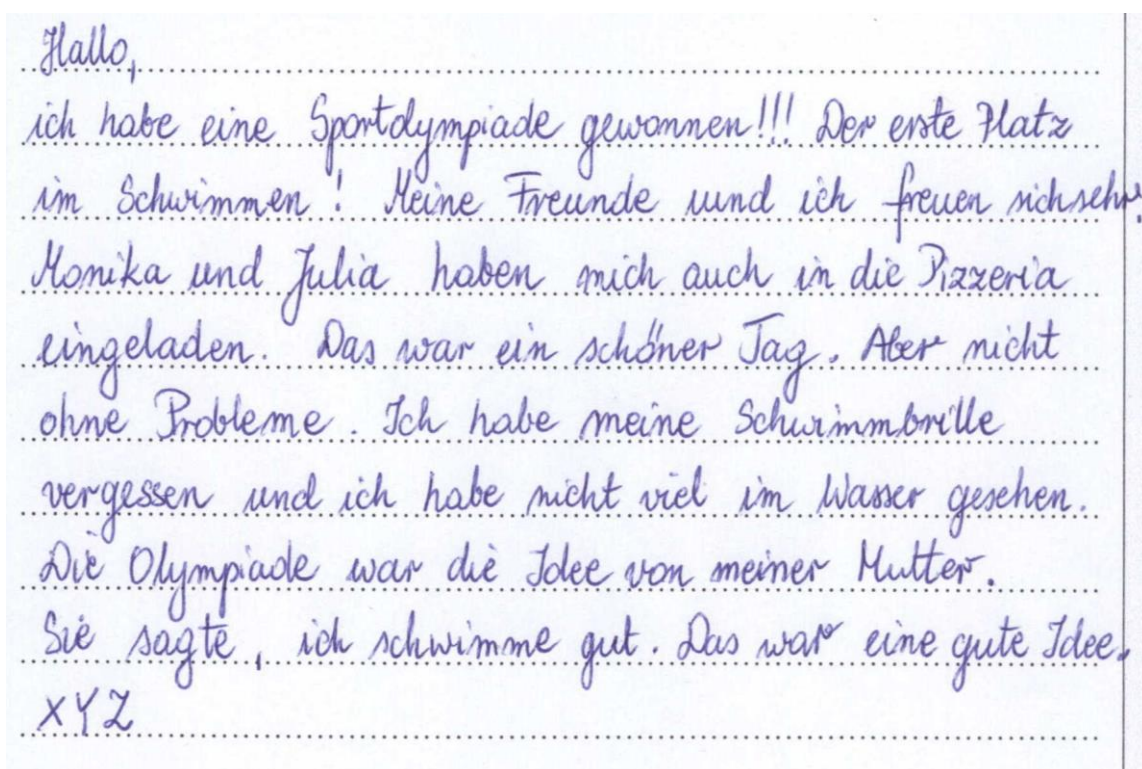 Hallo,
ich habe eine Sportolympiade gewonnen!!! Der erste Platz
im Schwimmen! Meine Freunde und ich freuen sich sehr
Monika und Julia haben mich auch in die Pizzeria
eingeladen. Das war ein schöner Tag. Aber nicht
ohne Probleme. Ich habe meine Schwimmbrille
vergessen und ich habe nicht viel im Wasser gesehen.
Die Olympiade war die Idee von meiner Mutter.
Sie sagte, ich schwimme gut. Das war eine gute Idee.
XYZ